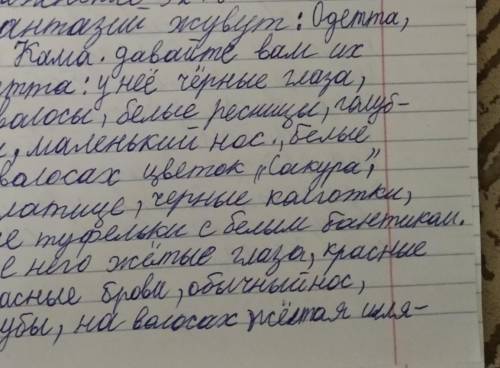 антазий жувут: Одетта,
Кама. давайте вам их
етта: у неё чёрные глаза,
волосы, белые ресницы, голуб-
, маленький нос., белые
волосах цветок „Сакура",
латице, черные калготки,
ые туфельки с белым бантикам.
е него жёлтые глаза, красные
асные брови, обычный нос,
убы, на волосах жёлтая шля-